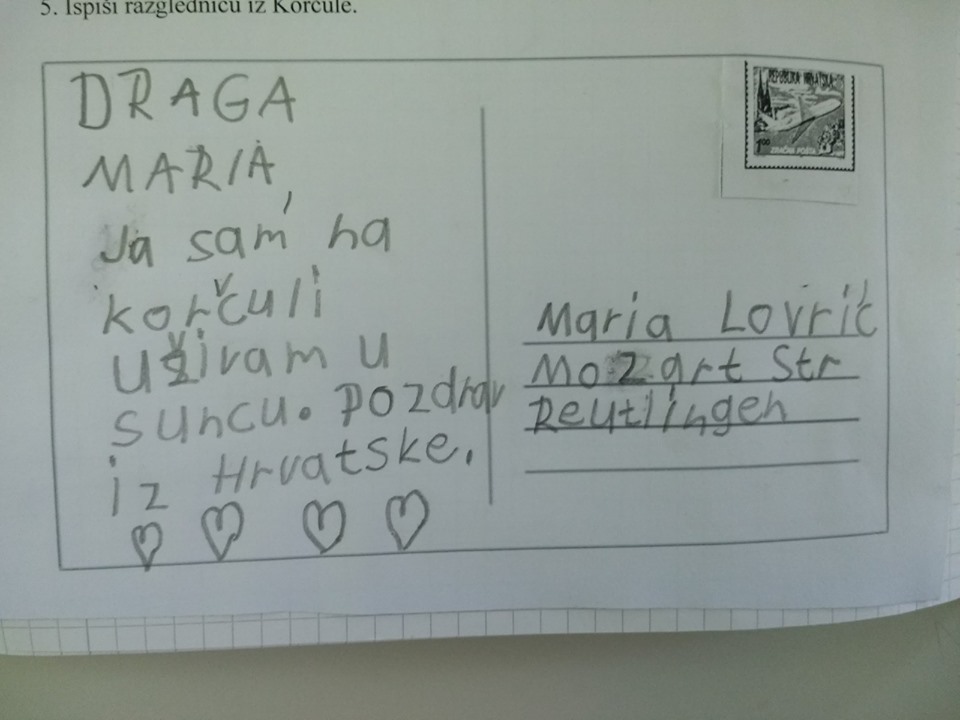 5. Ispiši razglednicu iz Korčule.
DRAGA
MARIA,
Ja sam na
korčuli
uživam u
suncu. Pozdrav
iz Hrvatske.
REPUBLIKA HRVATSKA
100
ZRAČNA POŠTA
Maria Lovrić
Mozart Str
Reutlingen